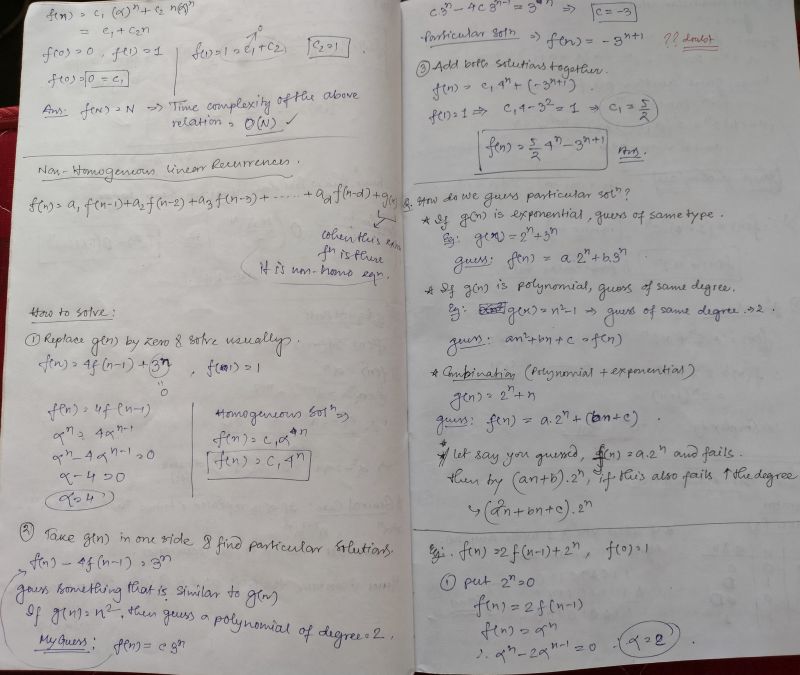 f(n) = c₁(α)ⁿ + c₂ n(α)ⁿ
= c₁ + c₂n
f(0) = 0 , f(1) = 1
f(0) = 0 = c₁
f(1) = 1 = c₁ + c₂
0
c₂ = 1
Ans: f(N) = N => Time complexity of the above
relation = O(N) ✓
Non-Homogeneous Linear Recurrences.
f(n) = a₁ f(n-1) + a₂ f(n-2) + a₃ f(n-3) + ...... + a_d f(n-d) + g(n)
when this extra
fⁿ is there
it is non-homo eqn.
How to solve:
① Replace g(n) by zero & solve usually.
f(n) = 4f(n-1) + 3ⁿ , f(1) = 1
" 0
f(n) = 4f(n-1)
αⁿ = 4αⁿ⁻¹
αⁿ - 4αⁿ⁻¹ = 0
α - 4 = 0
α = 4
Homogeneous Solⁿ =>
f(n) = c₁αⁿ
f(n) = c₁4ⁿ
② Take g(n) in one side & find particular solutions.
f(n) - 4f(n-1) = 3ⁿ
guess something that is similar to g(n)
If g(n) = n², then guess a polynomial of degree = 2.
My Guess: f(n) = c3ⁿ
c3ⁿ - 4c3ⁿ⁻¹ = 3ⁿ => c = -3
Particular Solⁿ => f(n) = -3ⁿ⁺¹ ?? doubt
③ Add both solutions together.
f(n) = c₁4ⁿ + (-3ⁿ⁺¹)
f(1) = 1 => c₁4 - 3² = 1 => c₁ = 5/2
f(n) = 5/2 4ⁿ - 3ⁿ⁺¹ Ans.
Q. How do we guess particular solⁿ?
* If g(n) is exponential, guess of same type.
Eg: g(n) = 2ⁿ + 3ⁿ
guess: f(n) = a.2ⁿ + b.3ⁿ
* If g(n) is polynomial, guess of same degree.
Eg: g(n) = n² - 1 => guess of same degree => 2.
guess: an² + bn + c = f(n)
* Combination (Polynomial + exponential)
g(n) = 2ⁿ + n
guess: f(n) = a.2ⁿ + (bn + c)
* let say you guessed, f(n) = a.2ⁿ and fails.
then by (an+b).2ⁿ, if this also fails ↑ the degree
↳ (an² + bn + c).2ⁿ
Eg: f(n) = 2f(n-1) + 2ⁿ , f(0) = 1
① put 2ⁿ = 0
f(n) = 2f(n-1)
f(n) = αⁿ
∴ αⁿ - 2αⁿ⁻¹ = 0 α = 2